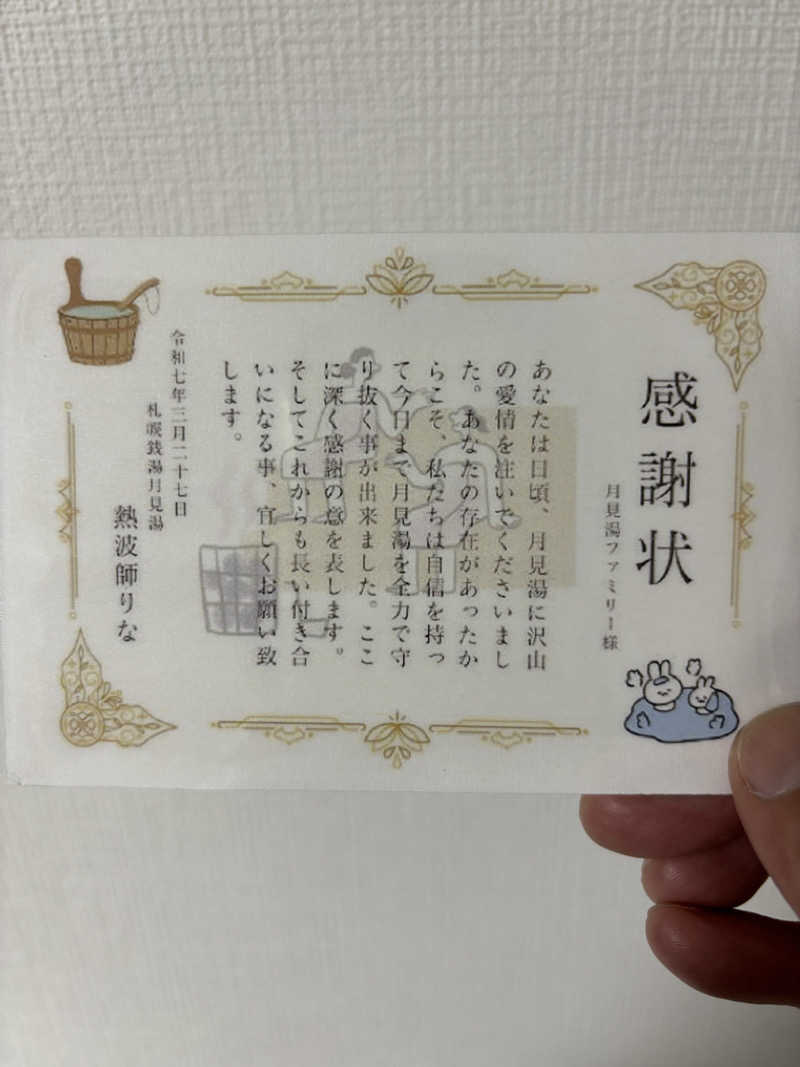 感謝状
月見湯ファミリー様
あなたは日頃、月見湯に沢山
の愛情を注いでくださいまし
た。あなたの存在があったか
らこそ、私たちは自信を持っ
て今日まで月見湯を全力で守
り抜く事が出来ました。ここ
に深く感謝の意を表します。
そしてこれからも長い付き合
いになる事、宜しくお願い致
します。
令和七年三月二十七日
札幌銭湯月見湯
熱波師りな